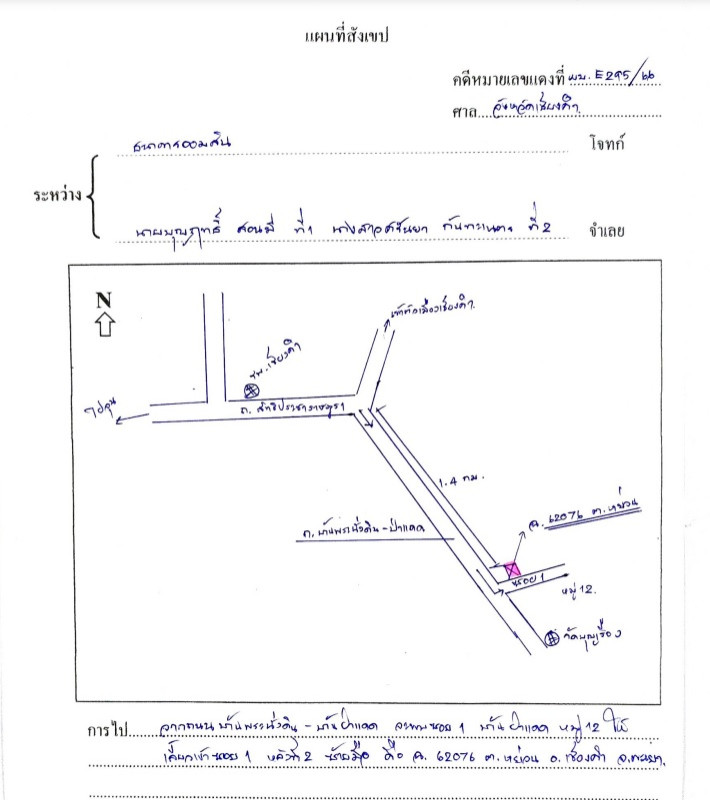 แผนที่สังเขป
คดีหมายเลขแดงที่ ผบ. E295/66
ศาล จังหวัดเชียงคำ
ธนาคารออมสิน โจทก์
ระหว่าง
นายบุญฤทธิ์ สอนมี ที่ 1 นางสาวศรันยา กันทะเนตร ที่ 2 จำเลย
N
เข้าตัวเมืองเชียงคำ
รพ.เชียงคำ
ไปจุน
ถ. สิทธิประชาราษฎร์
1.4 กม.
ฉ. 62076 ต.หย่วน
ถ.บ้านพระนั่งดิน-ป่าแดด
ซอย 1
หมู่ 12.
วัดบุญเรือง
การไป จากถนน บ้านพระนั่งดิน - บ้านป่าแดด ซอย 1 บ้านป่าแดด หมู่ 12 ให้
เลี้ยวเข้าซอย 1 หลังที่ 2 ซ้ายมือ คือ ฉ. 62076 ต.หย่วน อ.เชียงคำ จ.พะเยา.